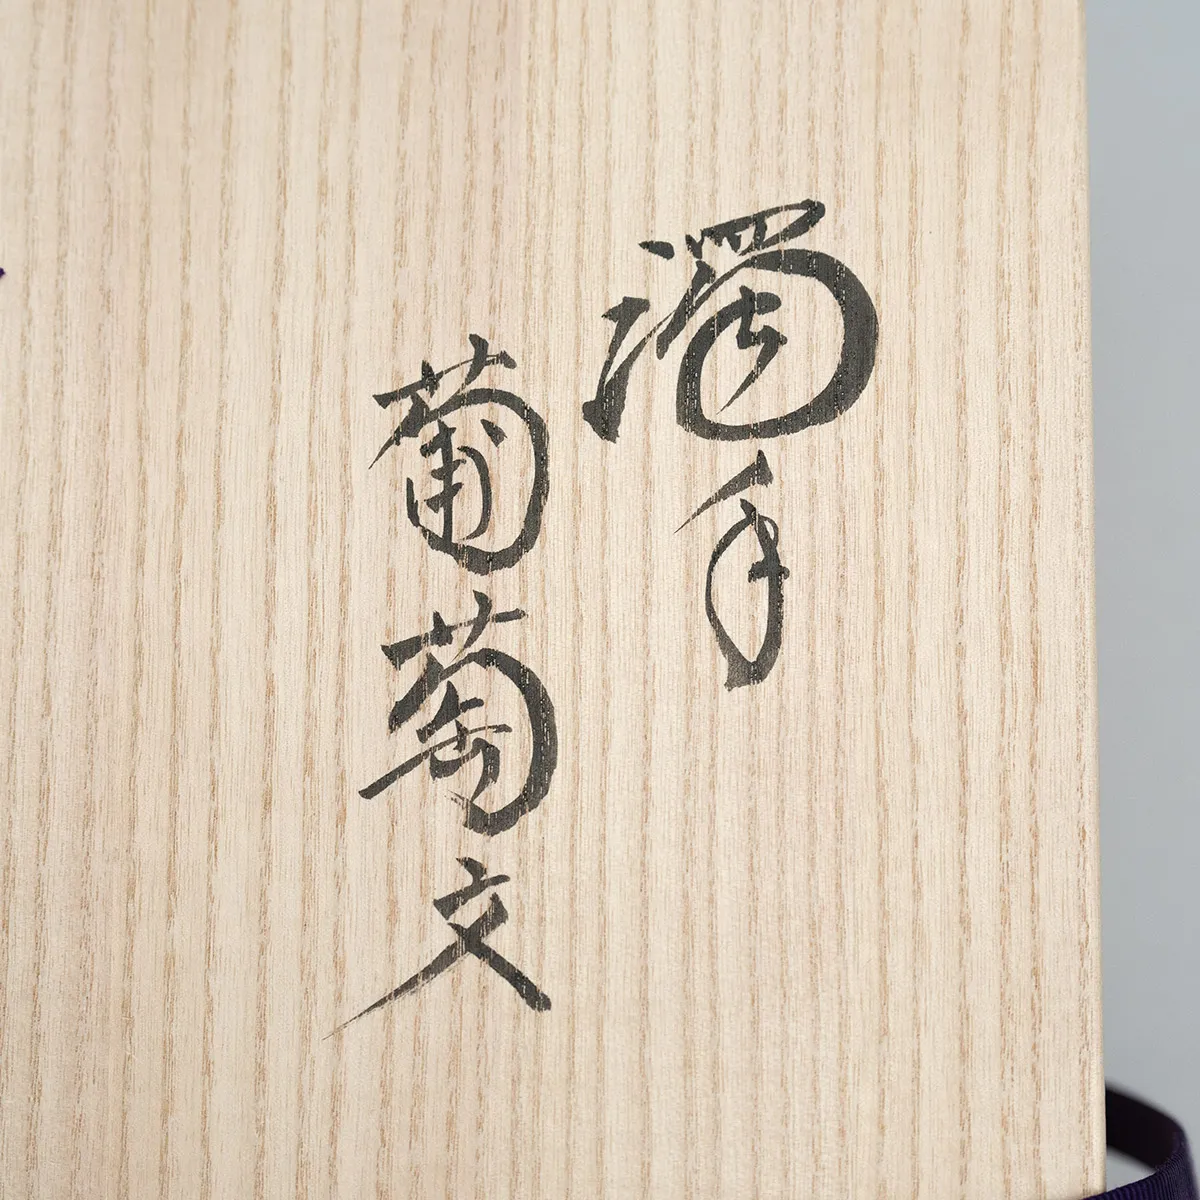 濁手
葡萄文